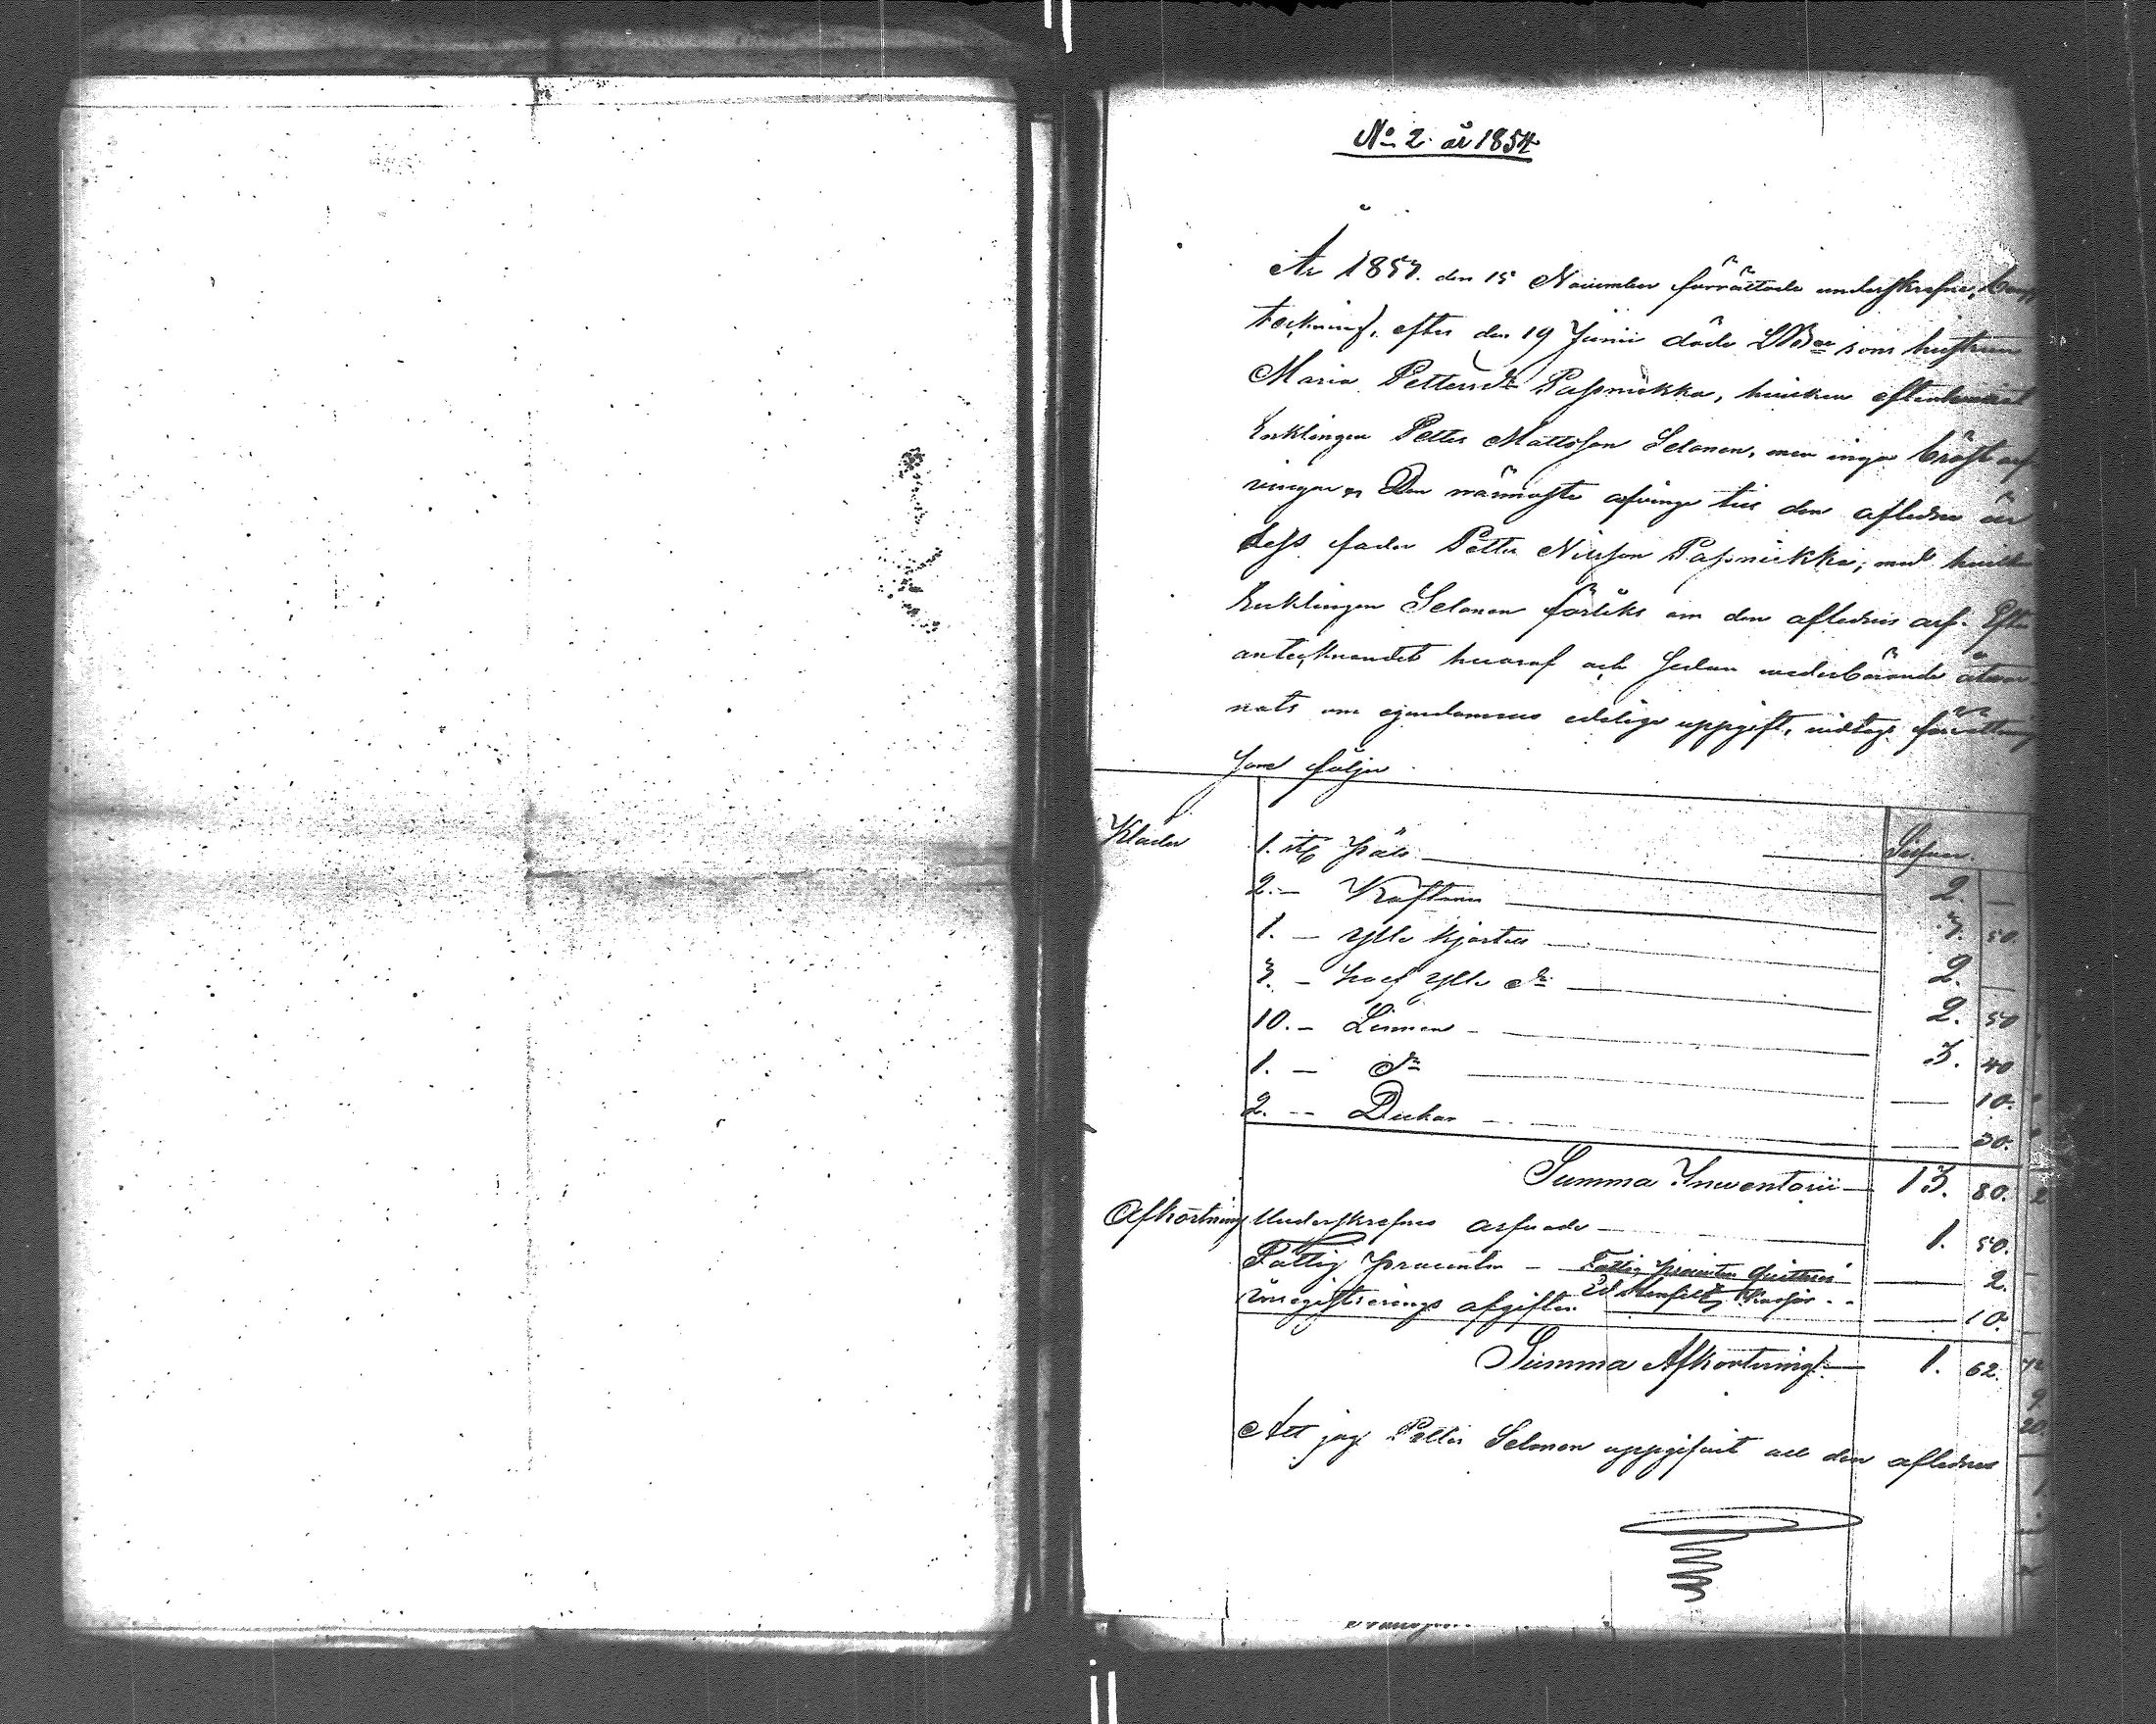 No 2 år 1854
År 1853. den 15 November förrättade underskrefne, boupp
teckning, efter den 19 Junii döde som hustrun
Maria Pettersdr Papinikka, hvilken efterlemnat
Enklingen Petter Mattsson Selonen, men inga bröst arf
vingar. Den närmaste arfvinge till den aflidne är
dess fader Petter Nilsson Papinikka; med hvilken
Enklingen Selonen förlikts om den aflidnes arf. Efter
antecknandet hvaraf och sedan vederbörande åtvar
nats om egendomens edeliga uppgift, vidtogs förrättning
som följer
Kläder 1. st Päls Silfver.
2. — Kaftaner 2. —
1. — ylle kjortel 3. 50.
3. — half ylle do 2. —
10. — Linnen 2. 50
1. — do 3. 40
2. — Dukar — 10.
— 30.
Summa Inventarii — 13. 80.
Afkortning Underskrefnes arfvode — 1. 50.
Fattig procenten — Fattig procenten quitteras — 2.
Inregistrerings afgiften — 10.
Summa Afkortning — 1. 62.
Att jag Petter Selonen uppgifvit all den aflidnes